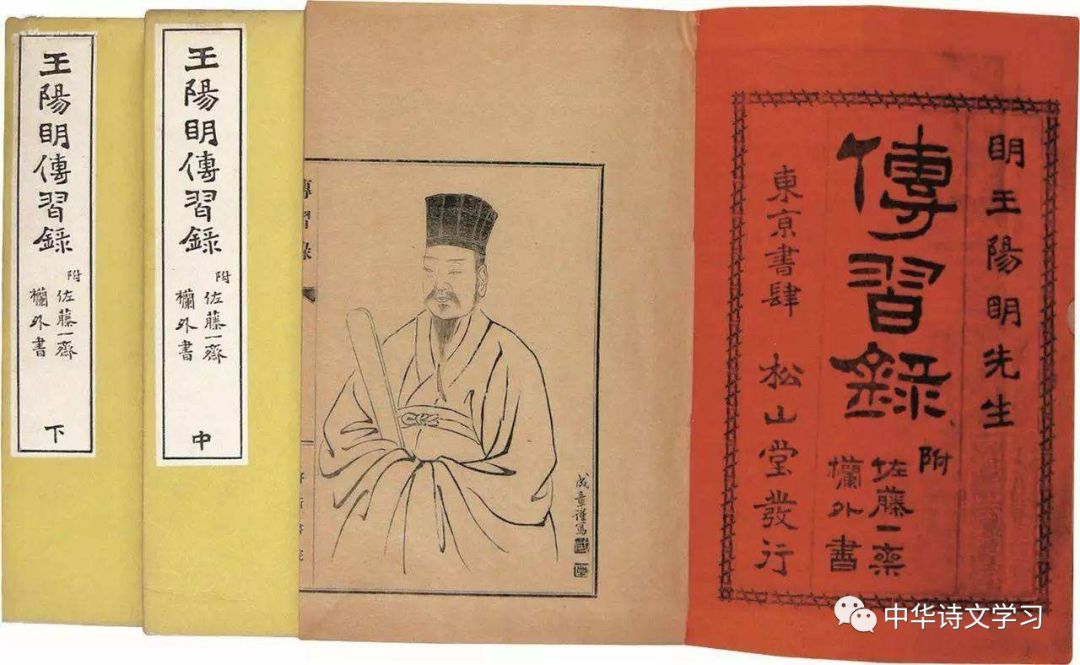 王陽眀傳習錄
附
佐藤一齋
欄外書
下
王陽眀傳習錄
附
佐藤一齋
欄外書
中
傳習錄
成章謹寫
眀王陽眀先生
傳習錄
附
佐藤一齋
欄外書
東亰書肆 松山堂發行
中华诗文学习